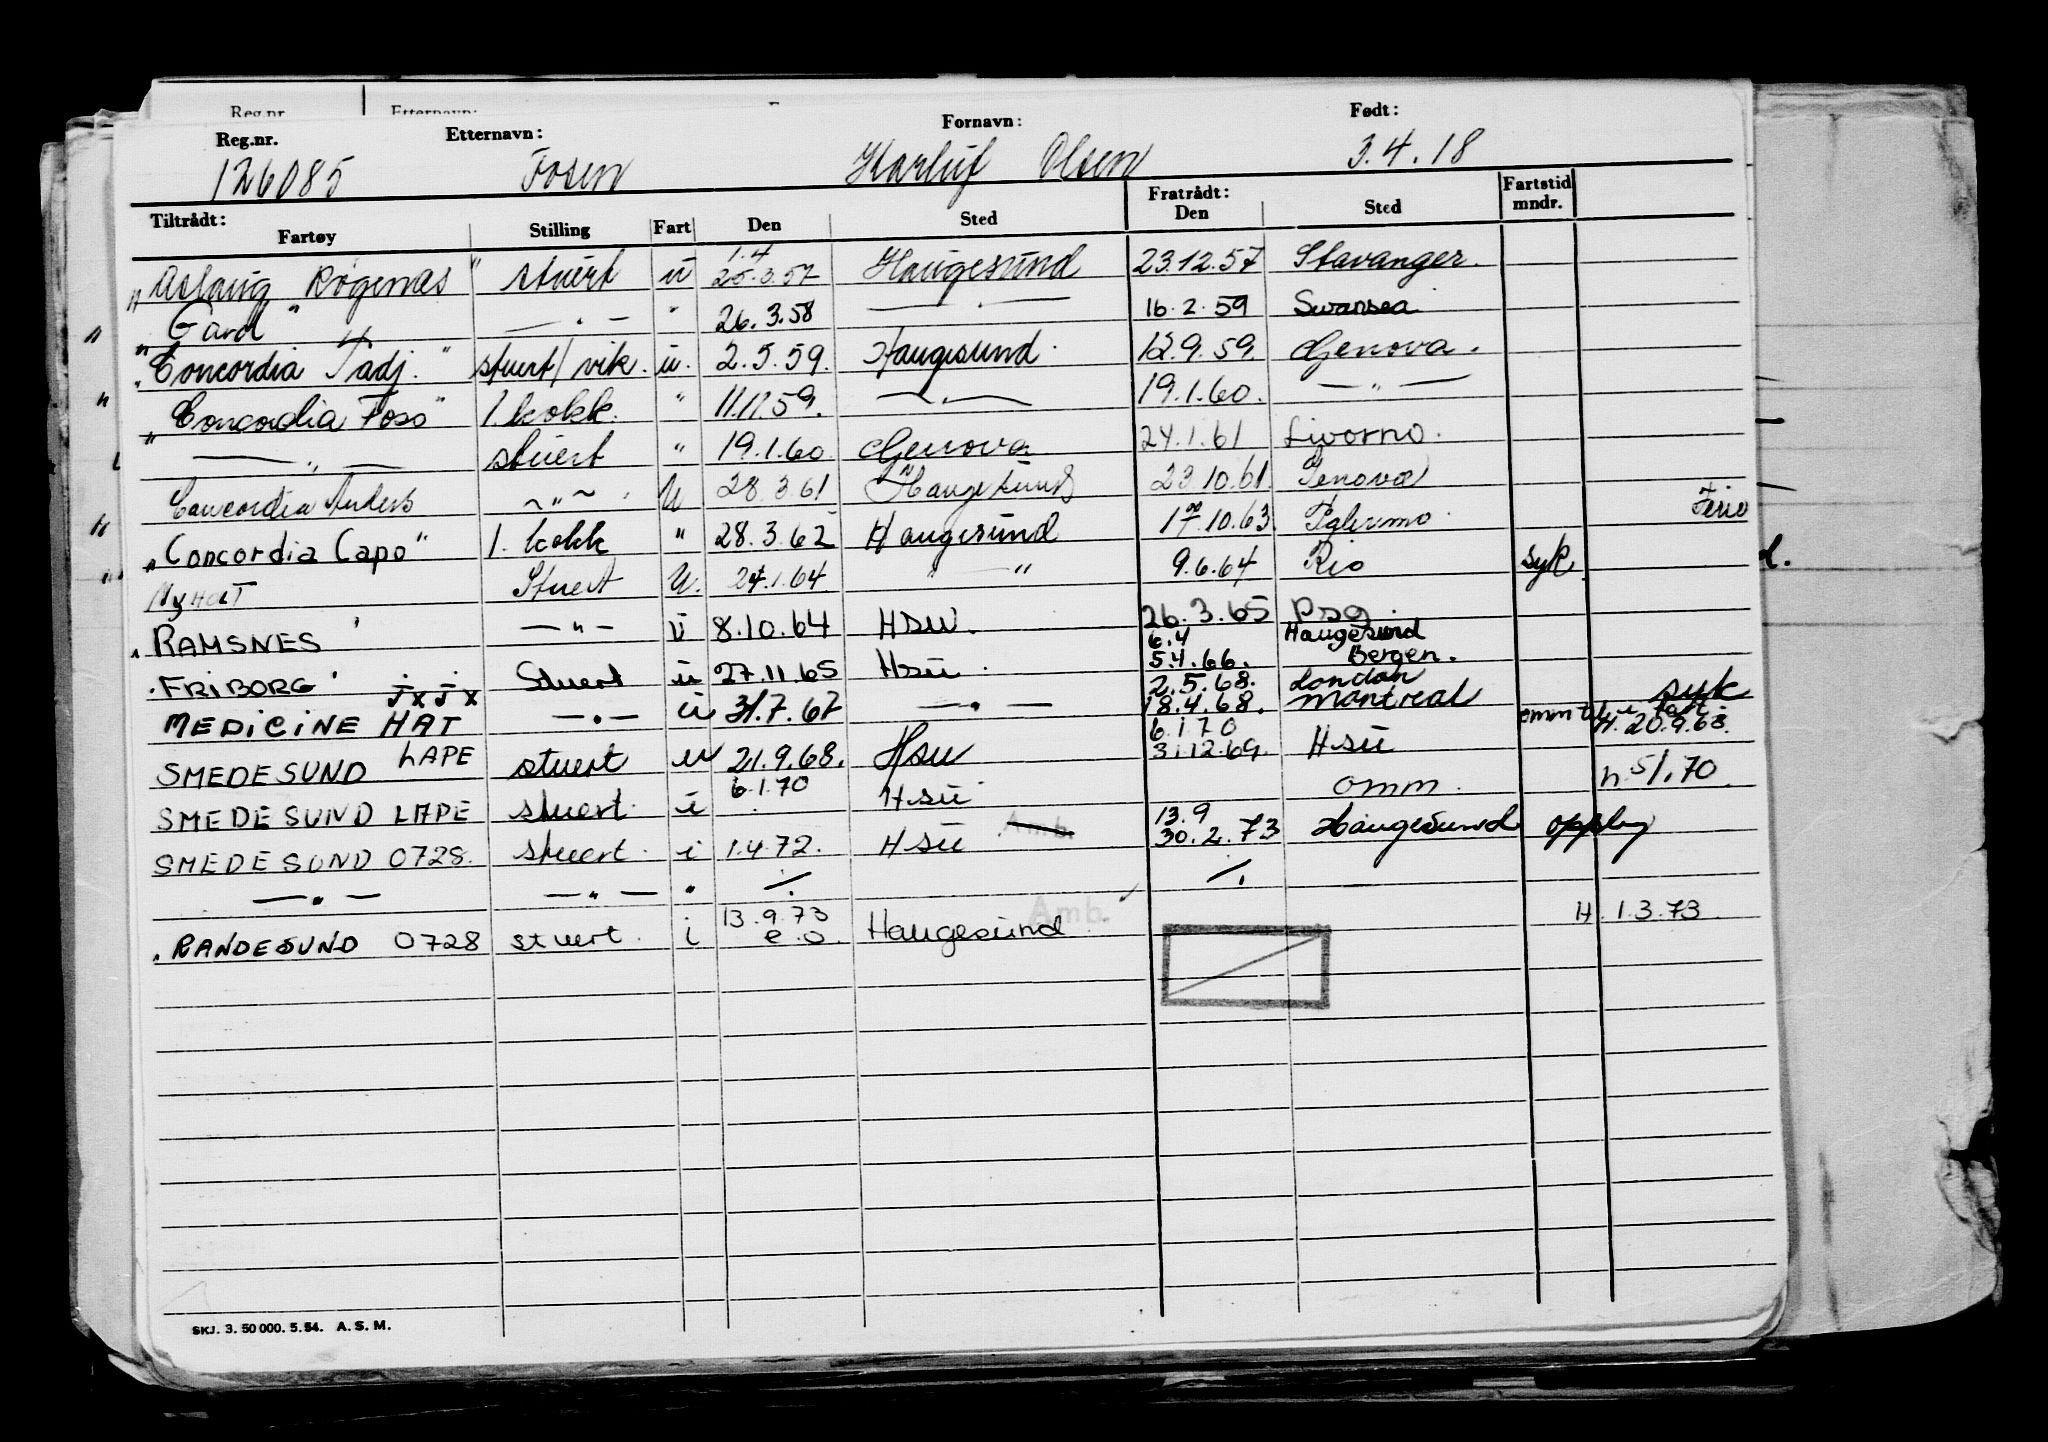 Reg.nr. Etternavn:
Reg.nr. Etternavn: Fornavn: Født:
126085 Fosen Harluf Olsen 3.4.18
Tiltrådt: Fratrådt: Fartstid
Fartøy Stilling Fart Den Sted Den Sted mndr.
1.4
"Aslaug Rogenæs" stuert u 25.3.57 Haugesund 23.12.57 Stavanger.
"Gard" — " — " 26.3.58 — " — 16.2.59 Swansea
"Concordia Tadj." stuert/vik. u. 2.5.59. Haugesund. 12.9.59. Genova.
"Concordia Foss" 1. kokk. " 11.11.59. — " — 19.1.60. — " —
— " — stuert " 19.1.60 Genova. 24.1.61 Livorno.
Concordia Anders — " — U 28.3.61 Haugesund 23.10.61. Genova
"Concordia Capo" 1. kokk " 28.3.62 Haugesund 17.10.63. Palermo. Ferie
Nyholt Stuert U. 24.1.64 — " 9.6.64 Rio syk
RAMSNES — " — u 8.10.64 HSU. 26.3.65 Psg.
6.4 Haugesund
FRIBORG Stuert u 27.11.65 Hsu. 5.4.66. Bergen.
JXJX 2.5.68. London syk
MEDICINE HAT — " — u 31.7.67 — " — 18.4.68. Montreal
6.1.70 H. 20.9.68.
SMEDESUND LAPE stuert u 21.9.68. Hsu 31.12.69. Hsu
SMEDESUND LAPE stuert. i 6.1.70 Hsu omm. h. 5/1.70
13.9
SMEDESUND 0728. stuert. i 1.4.72. Hsu Amb. 30.2.73 Haugesund opplag
— " — — " — " ⁒ ⁒
RANDESUND 0728 stuert. i 13.9.73 Haugesund Amb. H. 1.3.73.
e.o.
SKJ. 3. 50 000. 5. 54. A. S. M.